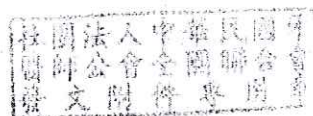 社團法人中華民國
師公會全國聯合會
文附件專用